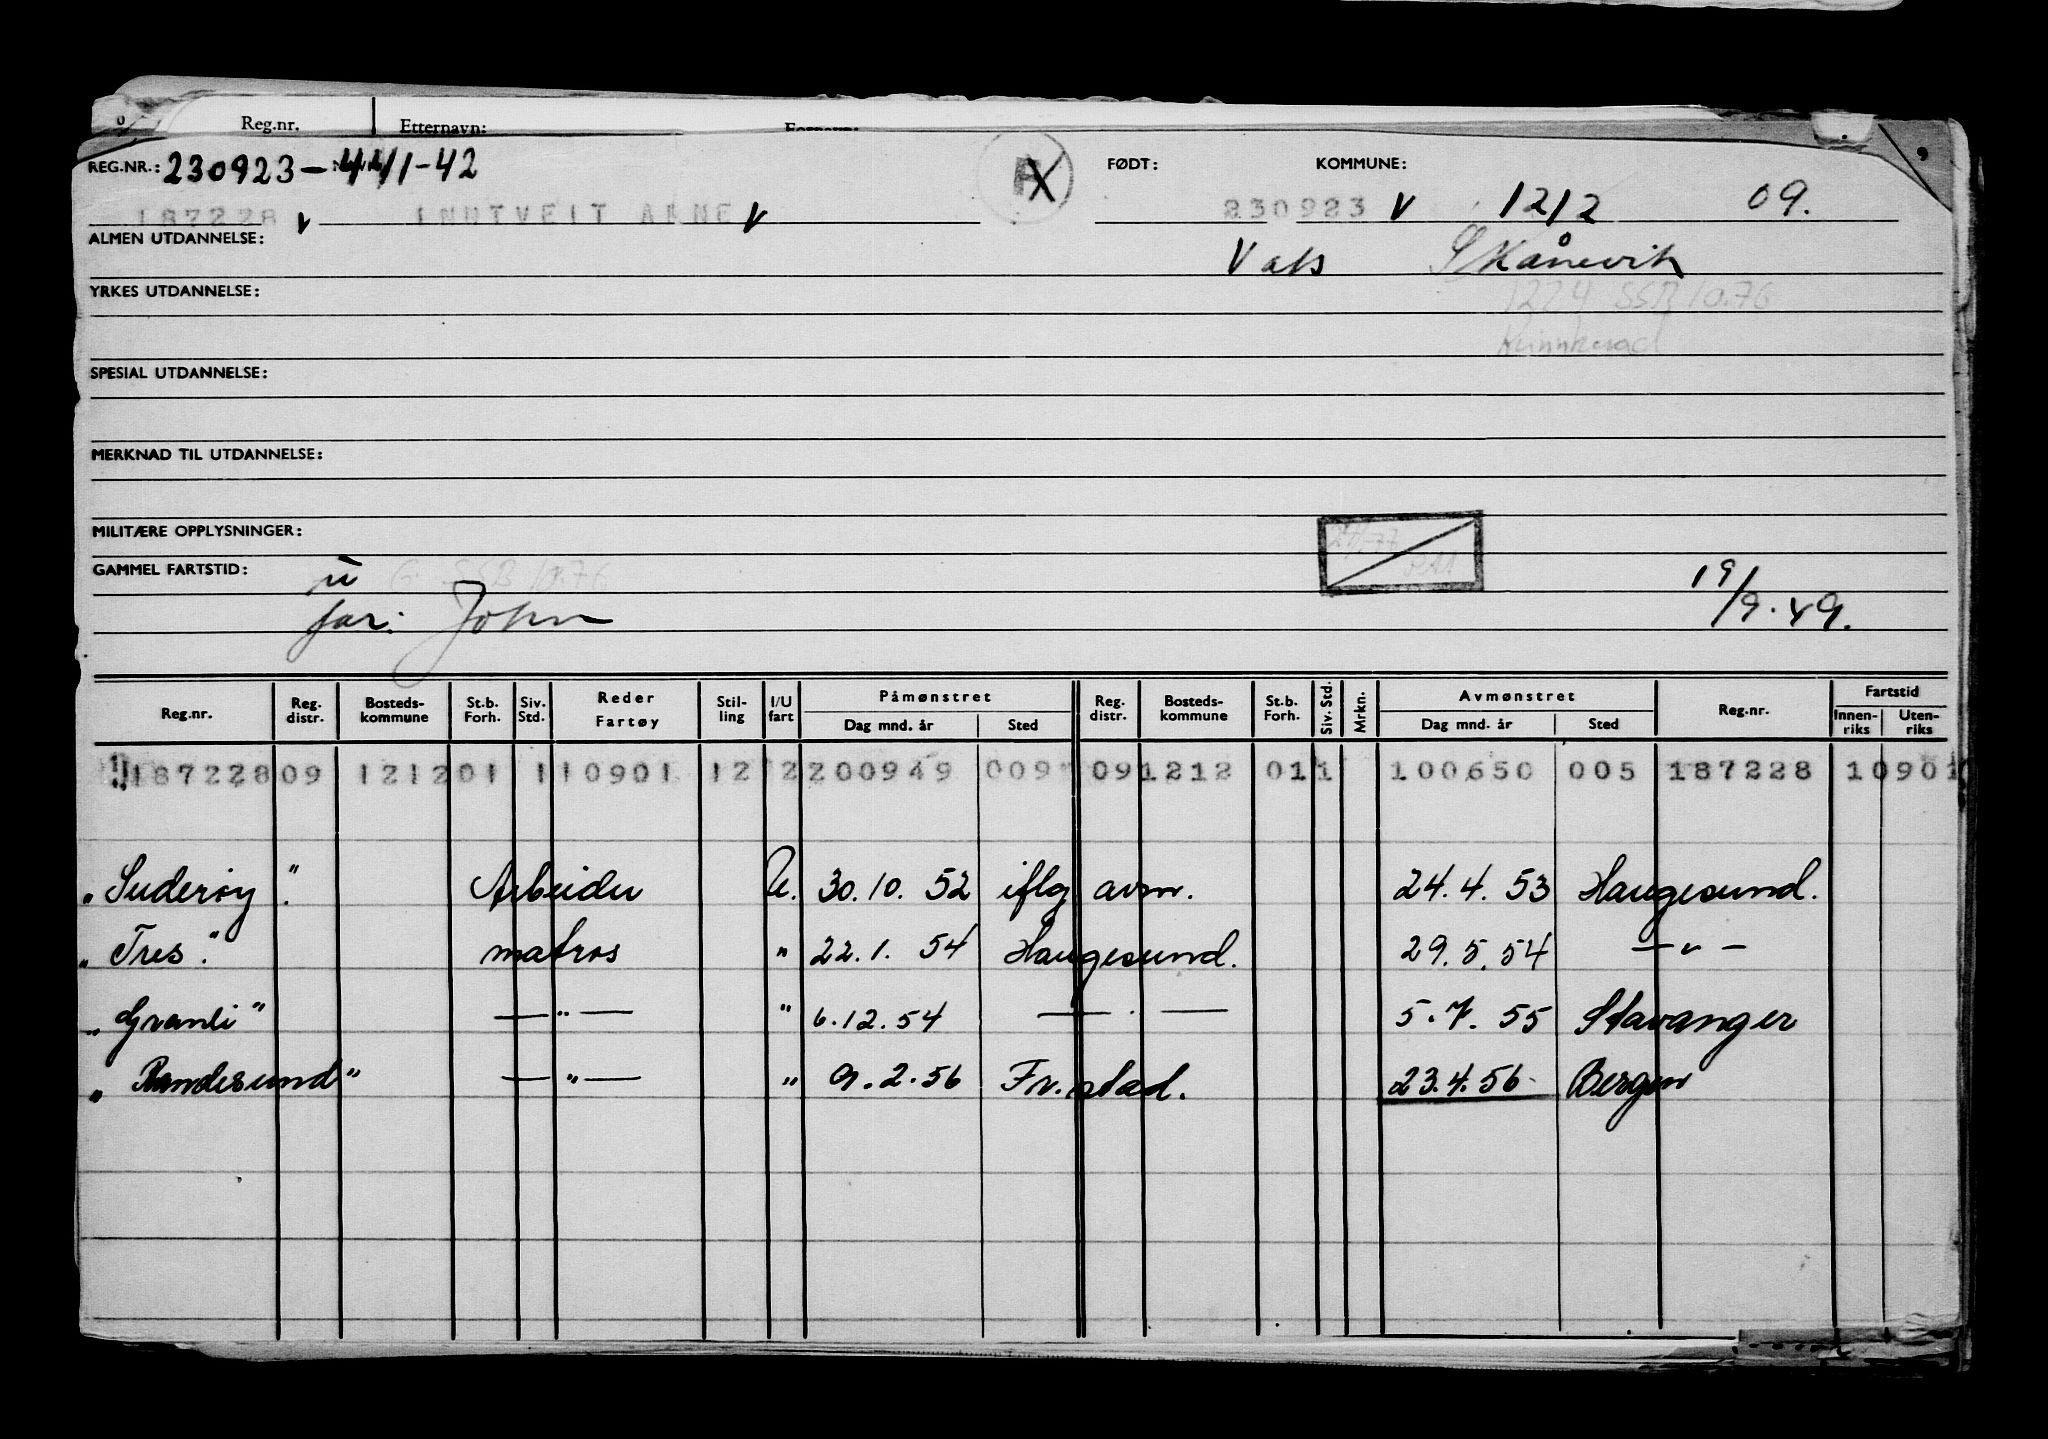 Reg.nr. Etternavn:
REG.NR.: 230923-441-42 FØDT: KOMMUNE:
187228 v INNTVEIT ARNE v 230923 v 1212 09.
ALMEN UTDANNELSE: Vats Skånevik
YRKES UTDANNELSE: 1224 SSB 10.76
Kvinnherad
SPESIAL UTDANNELSE:
MERKNAD TIL UTDANNELSE:
MILITÆRE OPPLYSNINGER:
GAMMEL FARTSTID: G. SSB 10.76 19/9.49.
far: John
Reg.nr. Reg. distr. Bosteds-kommune St.b. Forh. Siv. Std. Reder Fartøy Stil-ling I/U fart Påmønstret Dag mnd. år Sted Reg. distr. Bosteds-kommune St.b. Forh. Siv. Std. Mrkn. Avmønstret Dag mnd. år Sted Reg.nr. Fartstid Innen-riks Uten-riks
187228 09 1212 01 1 10901 12 2 200949 009 09 1212 01 1 100650 005 187228 10901
"Suderøy" Arbeider U. 30.10.52 iflg avm. 24.4.53 Haugesund.
"Tres." matros " 22.1.54 Haugesund. 29.5.54 — " —
"Granli" — " — " 6.12.54 — " — 5.7.55 Stavanger
"Randesund" — " — " 9.2.56 Fr.stad. 23.4.56 Bergen